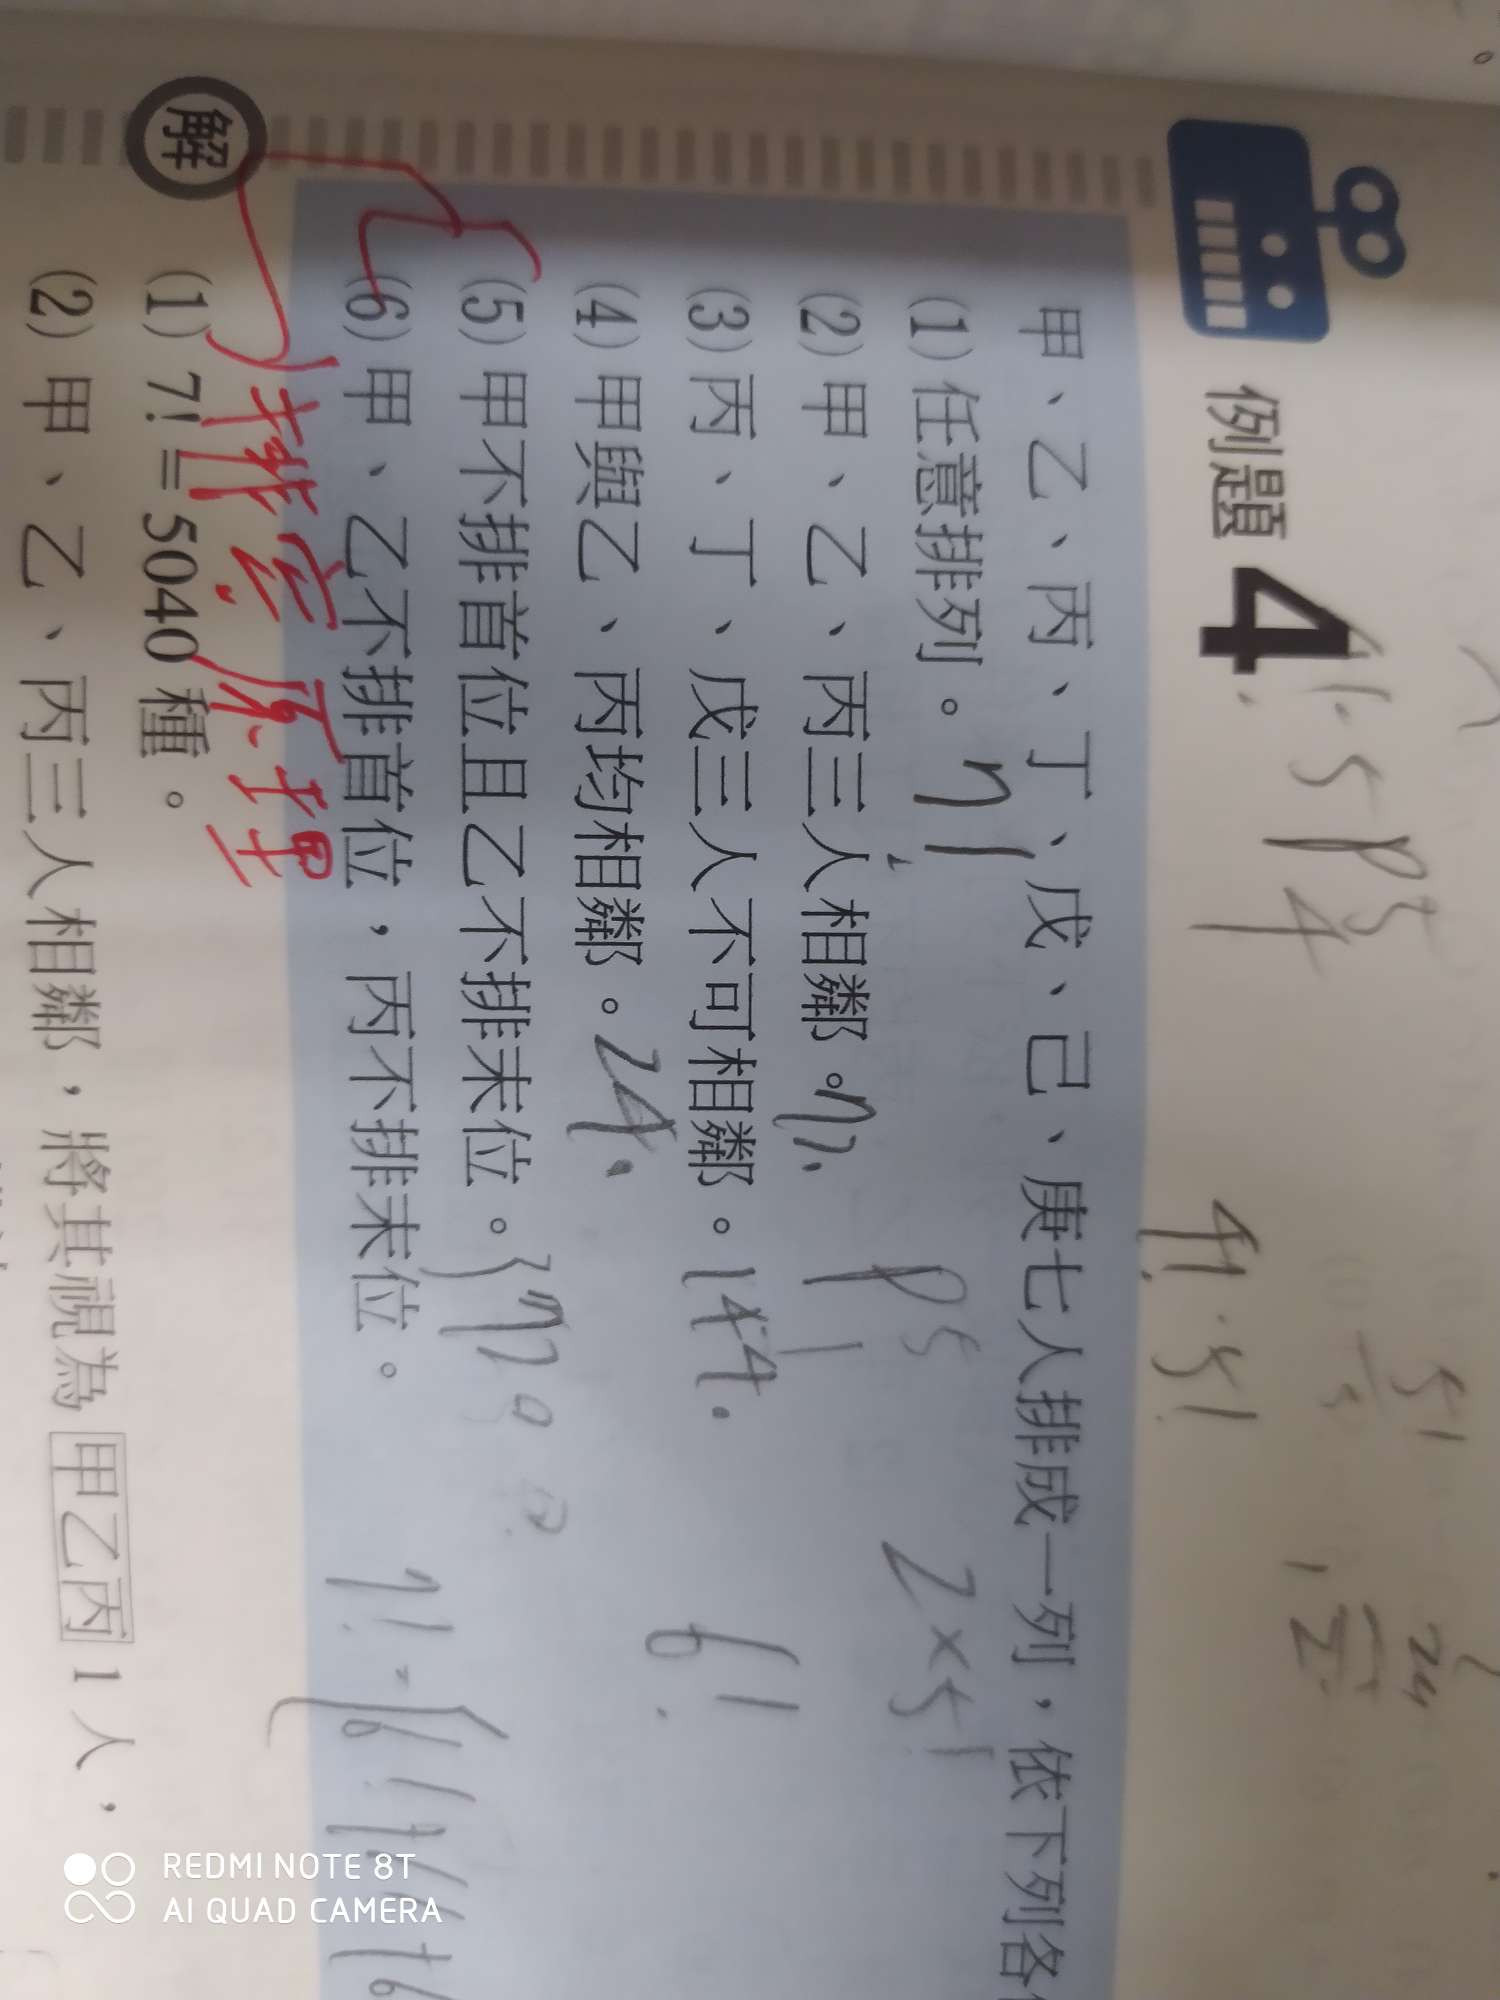 例題 4
甲、乙、丙、丁、戊、己、庚七人排成一列，依下列各
(1) 任意排列。 7!
(2) 甲、乙、丙三人相鄰。
(3) 丙、丁、戊三人不可相鄰。 144.
(4) 甲與乙、丙均相鄰。 24.
(5) 甲不排首位且乙不排末位。
(6) 甲、乙不排首位，丙不排末位。
2×5!
6!
4!·5!
5!
排容原理
解
(1) 7! = 5040 種。
(2) 甲、乙、丙三人相鄰，將其視為 甲乙丙 1 人，
REDMI NOTE 8T
AI QUAD CAMERA